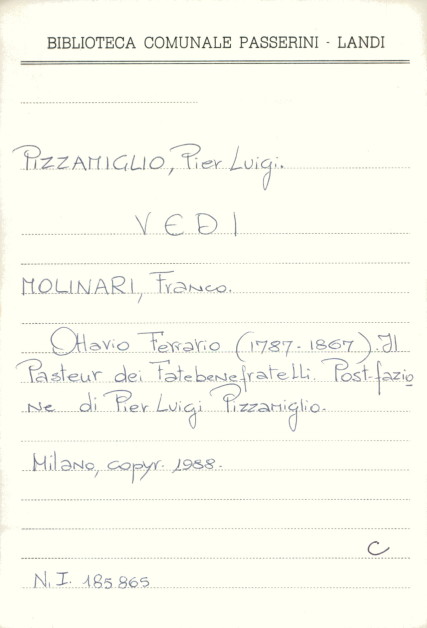 BIBLIOTECA COMUNALE PASSERINI - LANDI
PIZZAMIGLIO, Pier Luigi.
VEDI
MOLINARI, Franco.
Ottavio Ferrario (1787-1867). Il
Pasteur dei Fatebenefratelli. Post-fazio
ne di Pier Luigi Pizzamiglio.
Milano, copyr. 1988.
C
N.I. 185865